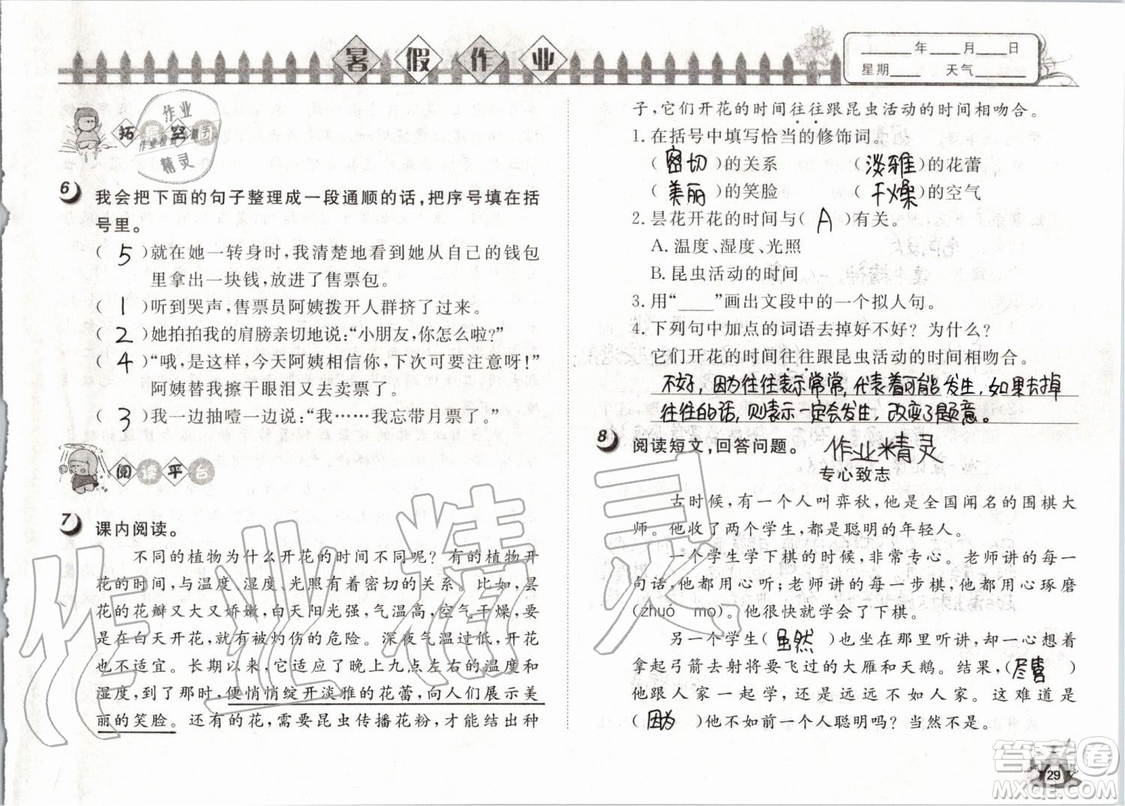 暑假作业
____年__月__日
星期____ 天气____
作业
精灵
拓展空间
6 我会把下面的句子整理成一段通顺的话,把序号填在括
号里。
( 5 )就在她一转身时,我清楚地看到她从自己的钱包
里拿出一块钱,放进了售票包。
( 1 )听到哭声,售票员阿姨拨开人群挤了过来。
( 2 )她拍拍我的肩膀亲切地说:“小朋友,你怎么啦?”
( 4 )“哦,是这样,今天阿姨相信你,下次可要注意呀!”
阿姨替我擦干眼泪又去卖票了。
( 3 )我一边抽噎一边说:“我……我忘带月票了。”
阅读平台
7 课内阅读。
不同的植物为什么开花的时间不同呢?有的植物开
花的时间,与温度、湿度、光照有着密切的关系。比如,昙
花的花瓣又大又娇嫩,白天阳光强,气温高,空气干燥,要
是在白天开花,就有被灼伤的危险。深夜气温过低,开花
也不适宜。长期以来,它适应了晚上九点左右的温度和
湿度,到了那时,便悄悄绽开淡雅的花蕾,向人们展示美
丽的笑脸。还有的花,需要昆虫传播花粉,才能结出种
子,它们开花的时间往往跟昆虫活动的时间相吻合。
1.在括号中填写恰当的修饰词。
( 密切 )的关系 ( 淡雅 )的花蕾
( 美丽 )的笑脸 ( 干燥 )的空气
2.昙花开花的时间与( A )有关。
A.温度、湿度、光照
B.昆虫活动的时间
3.用“____”画出文段中的一个拟人句。
4.下列句中加点的词语去掉好不好?为什么?
它们开花的时间往往跟昆虫活动的时间相吻合。
不好,因为往往表示常常,代表着可能发生,如果去掉
往往的话,则表示一定会发生,改变了题意。
8 阅读短文,回答问题。 作业精灵
专心致志
古时候,有一个人叫弈秋,他是全国闻名的围棋大
师。他收了两个学生,都是聪明的年轻人。
一个学生学下棋的时候,非常专心。老师讲的每一
句话,他都用心听;老师讲的每一步棋,他都用心琢磨
(zhuó mo)。他很快就学会了下棋。
另一个学生( 虽然 )也坐在那里听讲,却一心想着
拿起弓箭去射将要飞过的大雁和天鹅。结果,( 尽管 )
他跟人家一起学,还是远远不如人家。这难道是
( 因为 )他不如前一个人聪明吗?当然不是。
作业精灵
答案圈
MXQE.COM
29